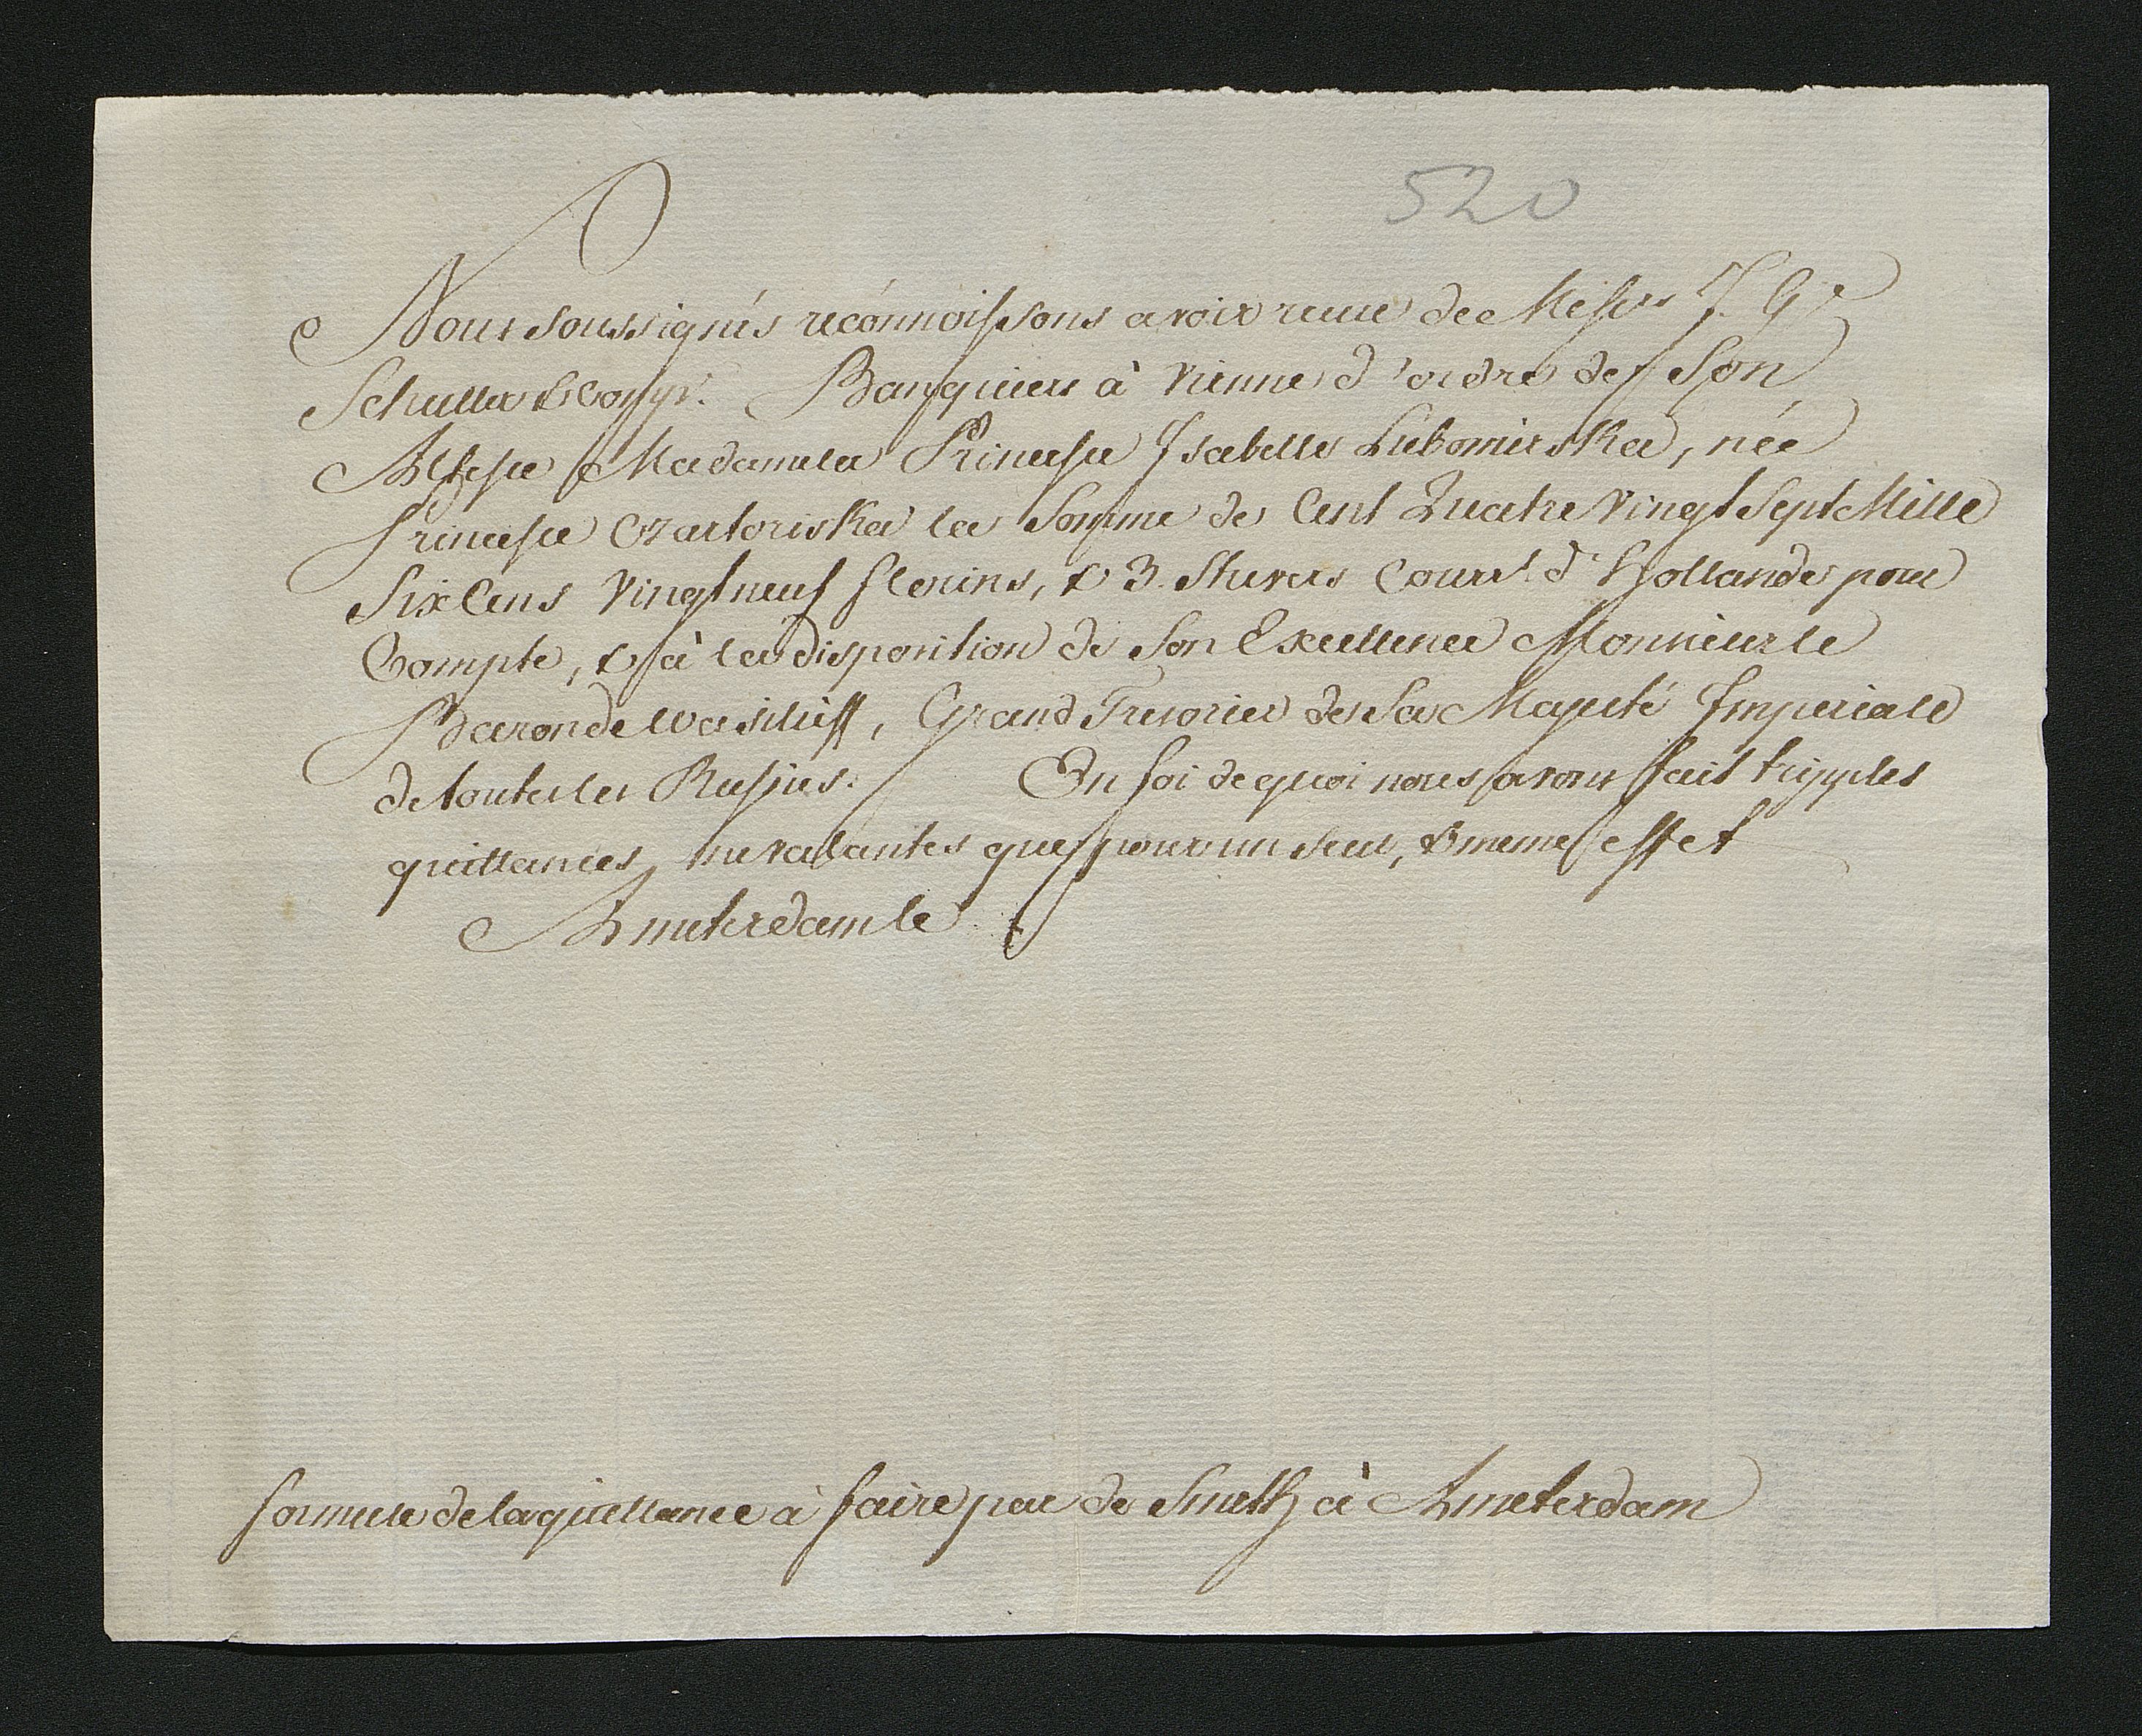 520
Nous soussignés recónnoissons avoir reçue de Messrs J. G.
Schuller & Comp. Banquiers à Vienne d'ordre de Son
Altesse Madame la Princesse Isabelle Lubomirska, née
Princesse Czartoriska la Somme de Cent Quatre Vingt Sept Mille
Six Cens Vingt neuf florins, & 3. Stuvers Courrt. d'Hollande pour
Compte, & à la disposition de Son Excellence Monsieur le
Baron de Wasilieff, Grand Tresorier de Sa Majesté Imperiale
de toutes les Russies. En foi de quoi nous avons fait tripples
quittances, ne valantes que pour un seul, & meme effet
Amsterdam le
formule de la quittance à faire par de Smeth à Amsterdam